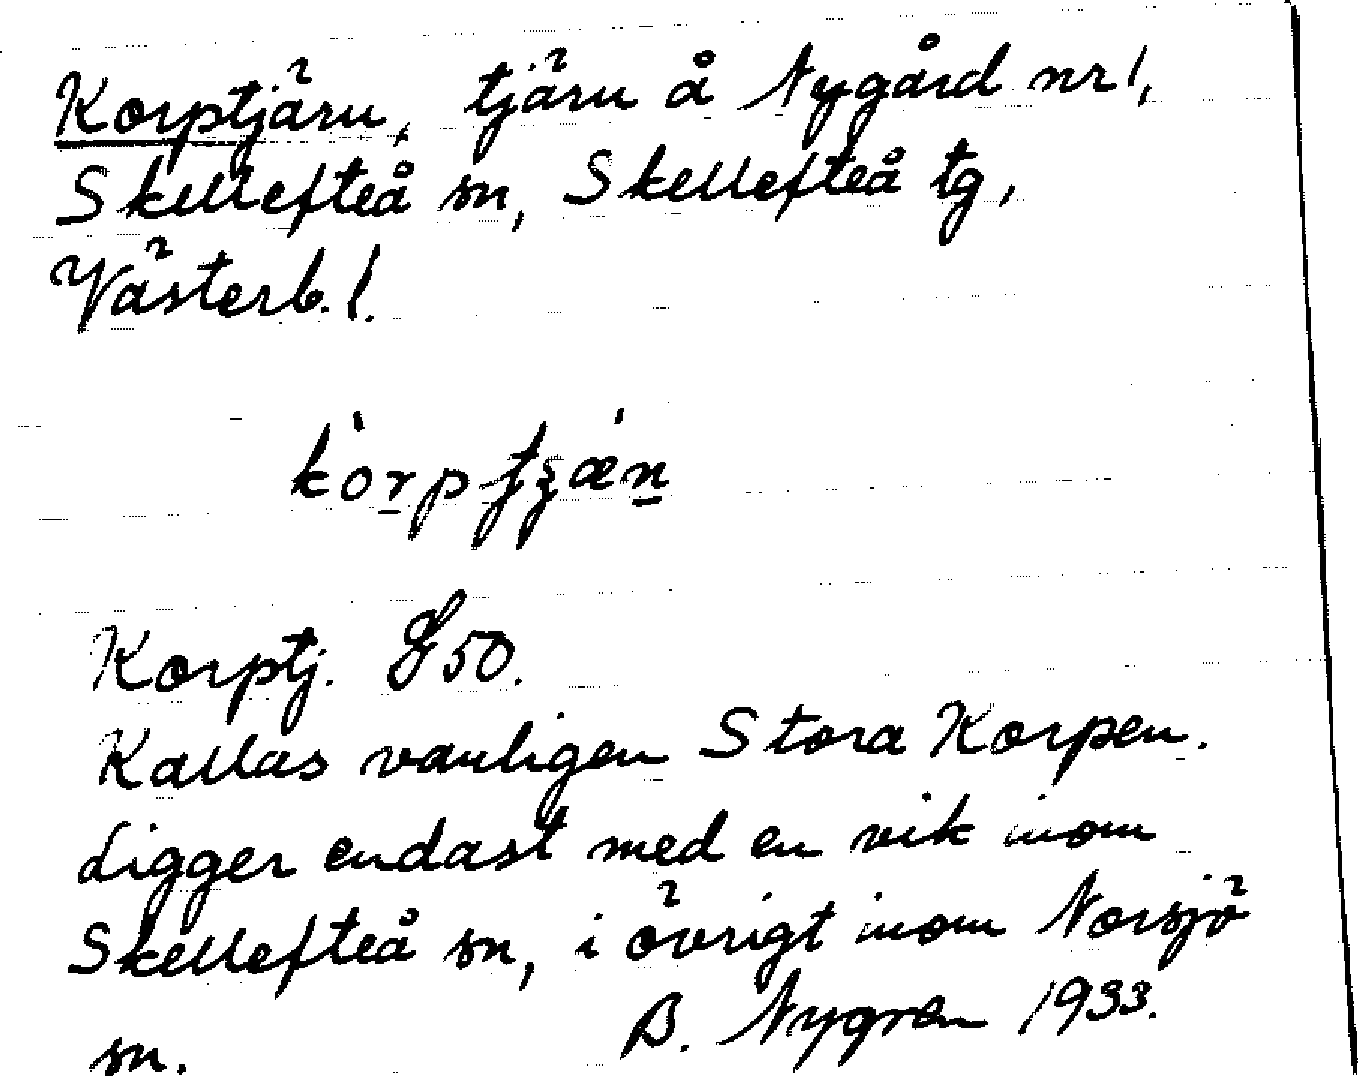 Korptjärn, tjärn å Nygård nr 1,
Skellefteå sn, Skellefteå tg,
Västerb. l.
Korptj. G 50.
Kallas vanligen Stora Korpen.
Ligger endast med en vik inom
Skellefteå sn, i övrigt inom Norsjö
sn. B. Nygren 1933.